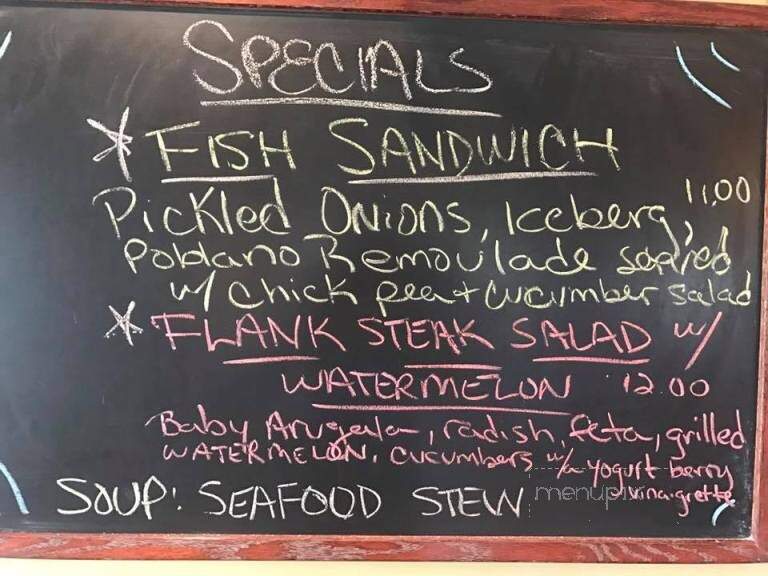 SPECIALS
* FISH SANDWICH
11.00
Pickled Onions, Iceberg,
Poblano Remoulade served
w/ chick pea + cucumber salad
* FLANK STEAK SALAD w/
WATERMELON 12.00
Baby Arugala, radish, feta, grilled
WATERMELON, cucumbers w/a yogurt berry
vinaigrette
SOUP: SEAFOOD STEW